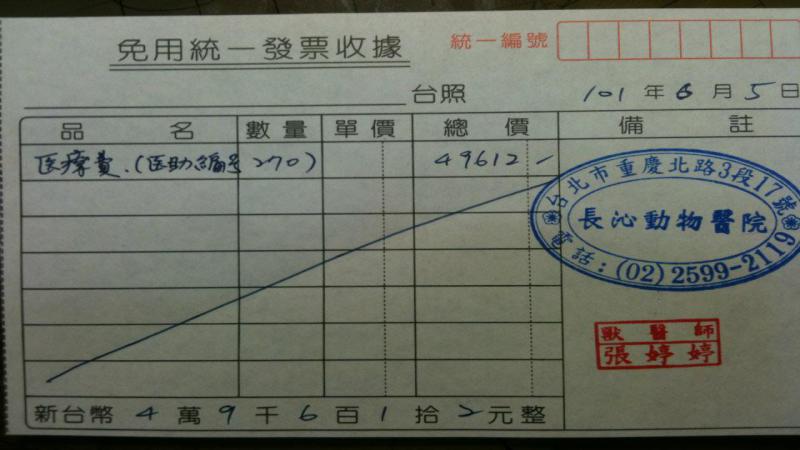 免用統一發票收據
統一編號
台照
101年6月5日
品名 數量 單價 總價 備註
医療費.(医助編号270) 49612-
台北市重慶北路3段17號
長沁動物醫院
電話:(02)2599-2119
獸醫師
張婷婷
新台幣4萬9千6百1拾2元整